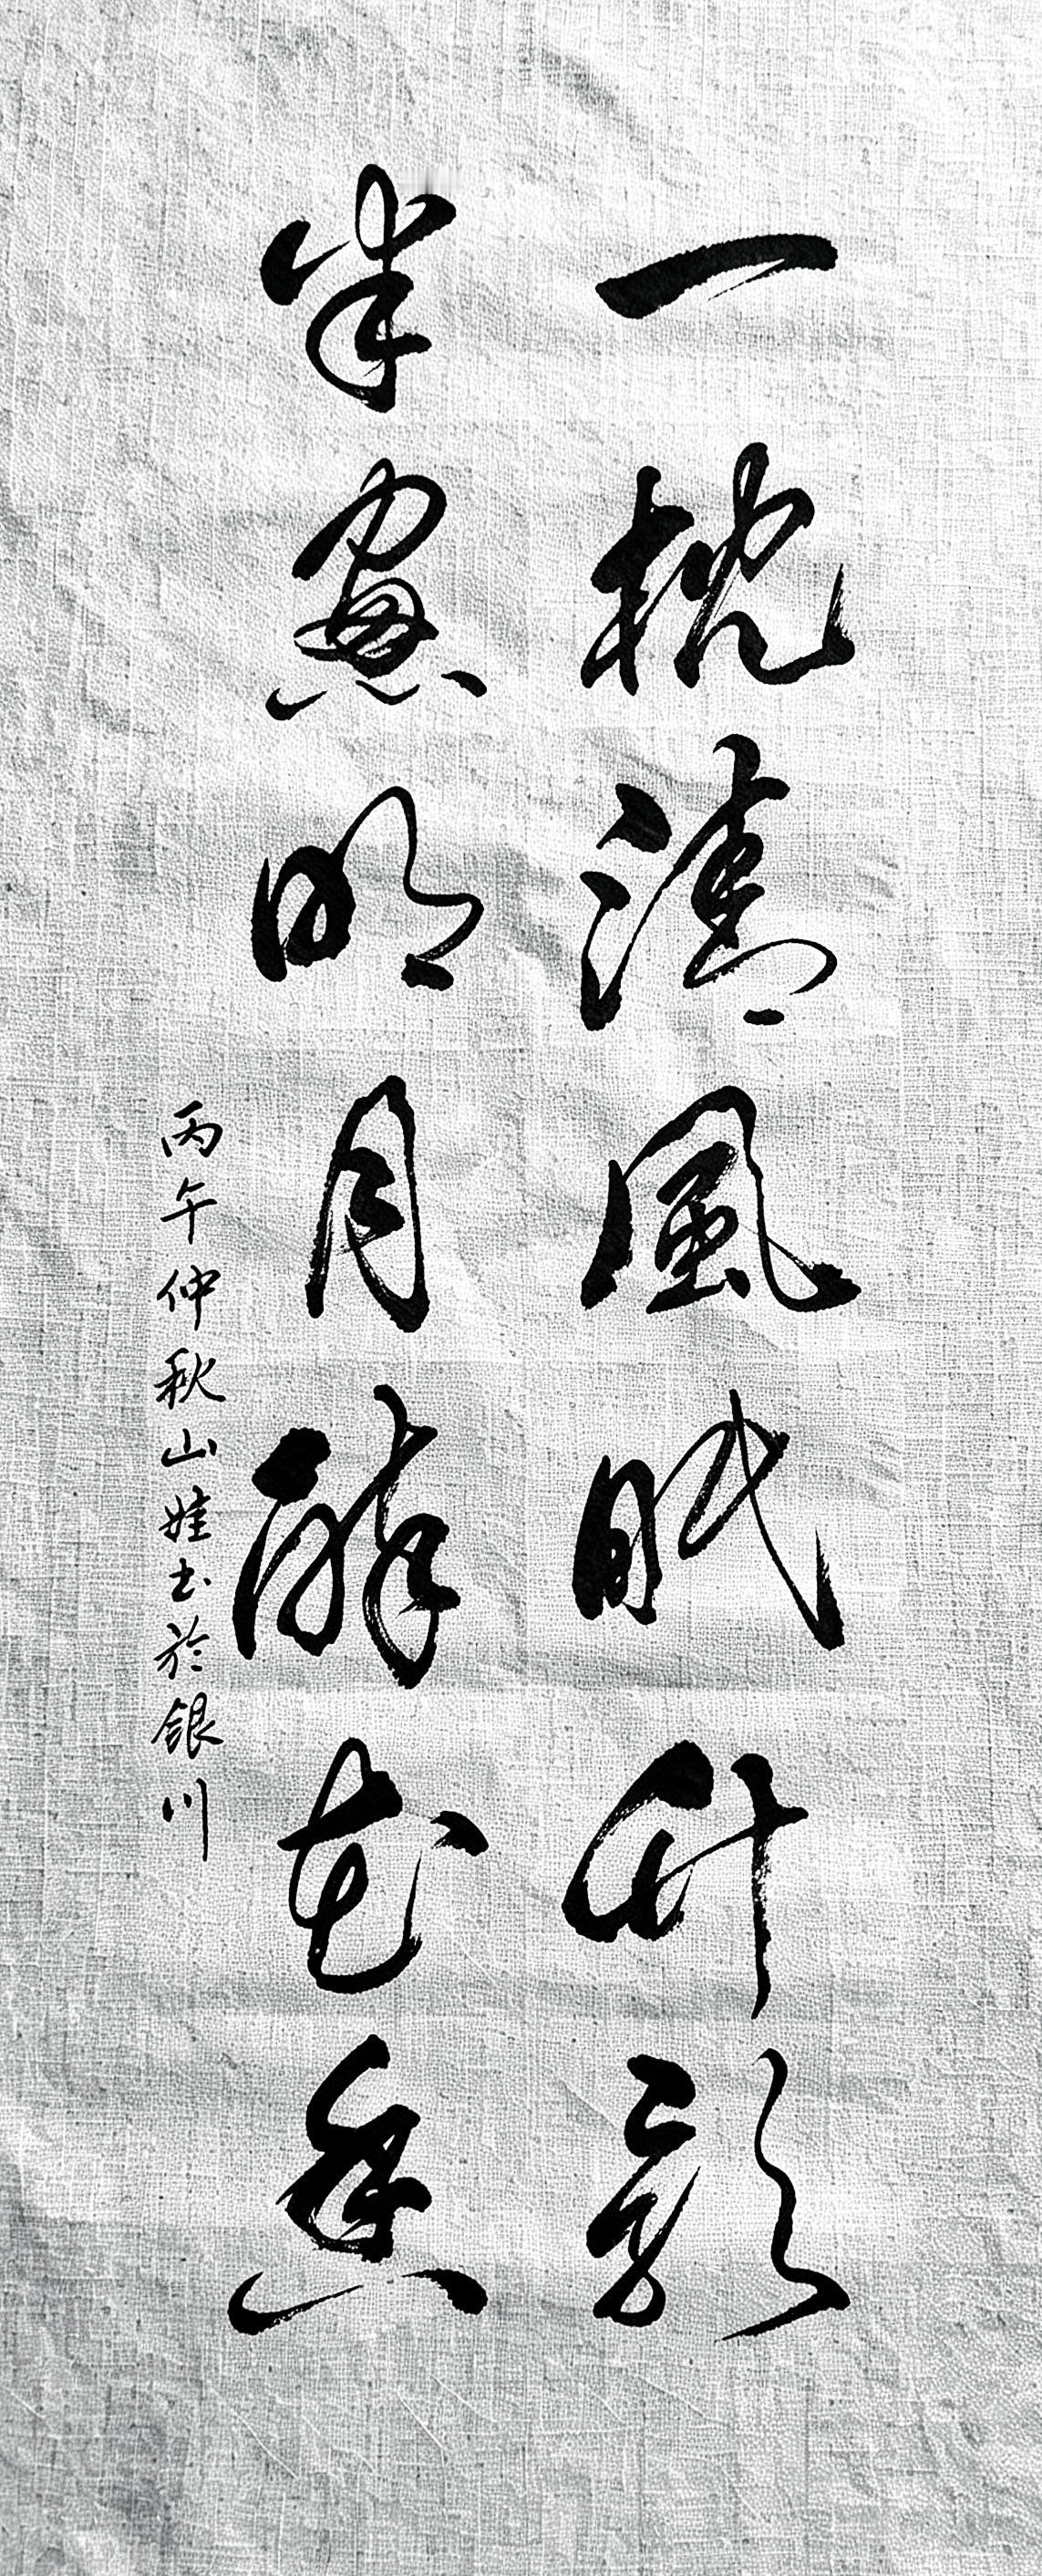 一枕清風眠竹影
半窻明月醉花香
丙午仲秋山娃书於銀川